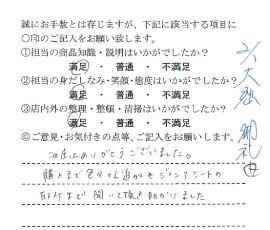 誠にお手数とは存じますが、下記に該当する項目に
〇印のご記入をお願い致します。
①担当の商品知識・説明はいかがでしたか?
満足 ・ 普通 ・ 不満足
②担当の身だしなみ・笑顔・態度はいかがでしたか?
満足 ・ 普通 ・ 不満足
③店内外の整理・整頓・清掃はいかがでしたか?
満足 ・ 普通 ・ 不満足
◎ご意見・お気付きの点等、ご記入をお願いします。
この度はありがとうございました。
購入まで色々
シートの
取付まで 聞いて頂き助かりました